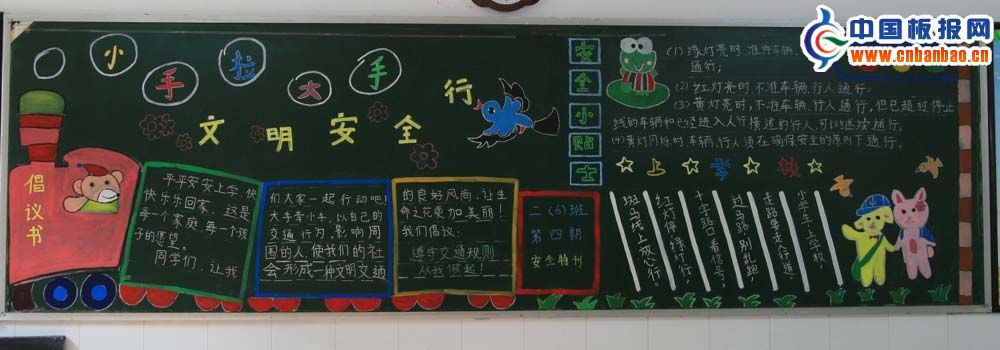 小手拉大手
文明安全行
倡议书
平平安安上学,快
快乐乐回家,这是
每一个家庭,每一个孩
子的愿望。
同学们,让我
们大家一起行动吧!
大手牵小手,以自己的
交通行为,影响周
围的人,使我们的社
会形成一种文明交通
的良好风尚,让生
命之花更加美丽!
我们倡议:
遵守交通规则
从我做起!
二(6)班
第四期
安全特刊
安全小贴士
(1)绿灯亮时,准许车辆、
通行;
(2)红灯亮时,不准车辆、行人通行;
(3)黄灯亮时,不准车辆、行人通行,但已超过停止
线的车辆和已经进入人行横道的行人,可以继续通行。
(4)黄灯闪烁时,车辆、行人须在确保安全的原则下通行。
上学校
小学生,上学校,
走路要走人行道,
过马路,别乱跑,
十字路口看信号,
红灯停,绿灯行,
斑马线上放心行。
中国板报网
www.cnbanbao.cn